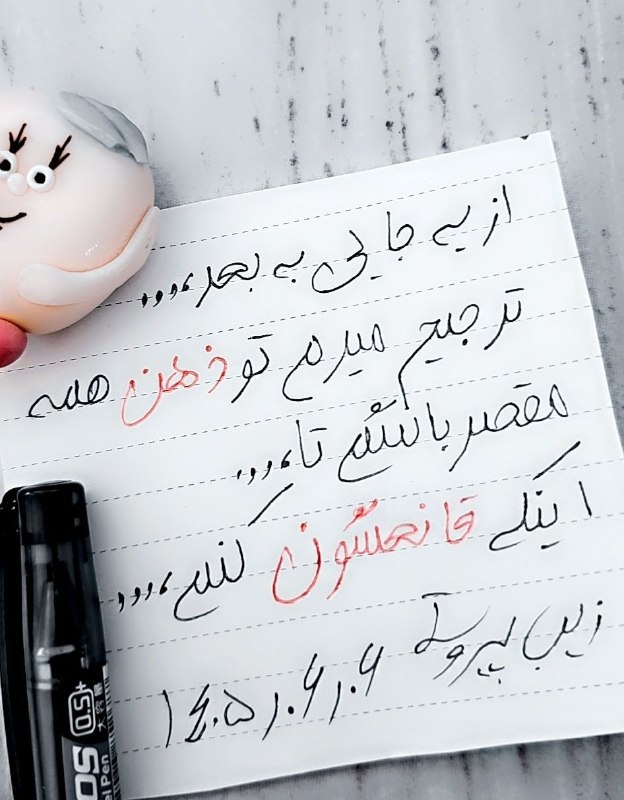 از یه جایی به بعد،،،،
ترجیح میدم تو ذهن همه
مقصر باشم تا،،،،
اینکه قانعشون کنم،،،،
زینب پیروت
۱۴۰۵،۰۶،۰۶
0.5+
大容量
OS
el Pen